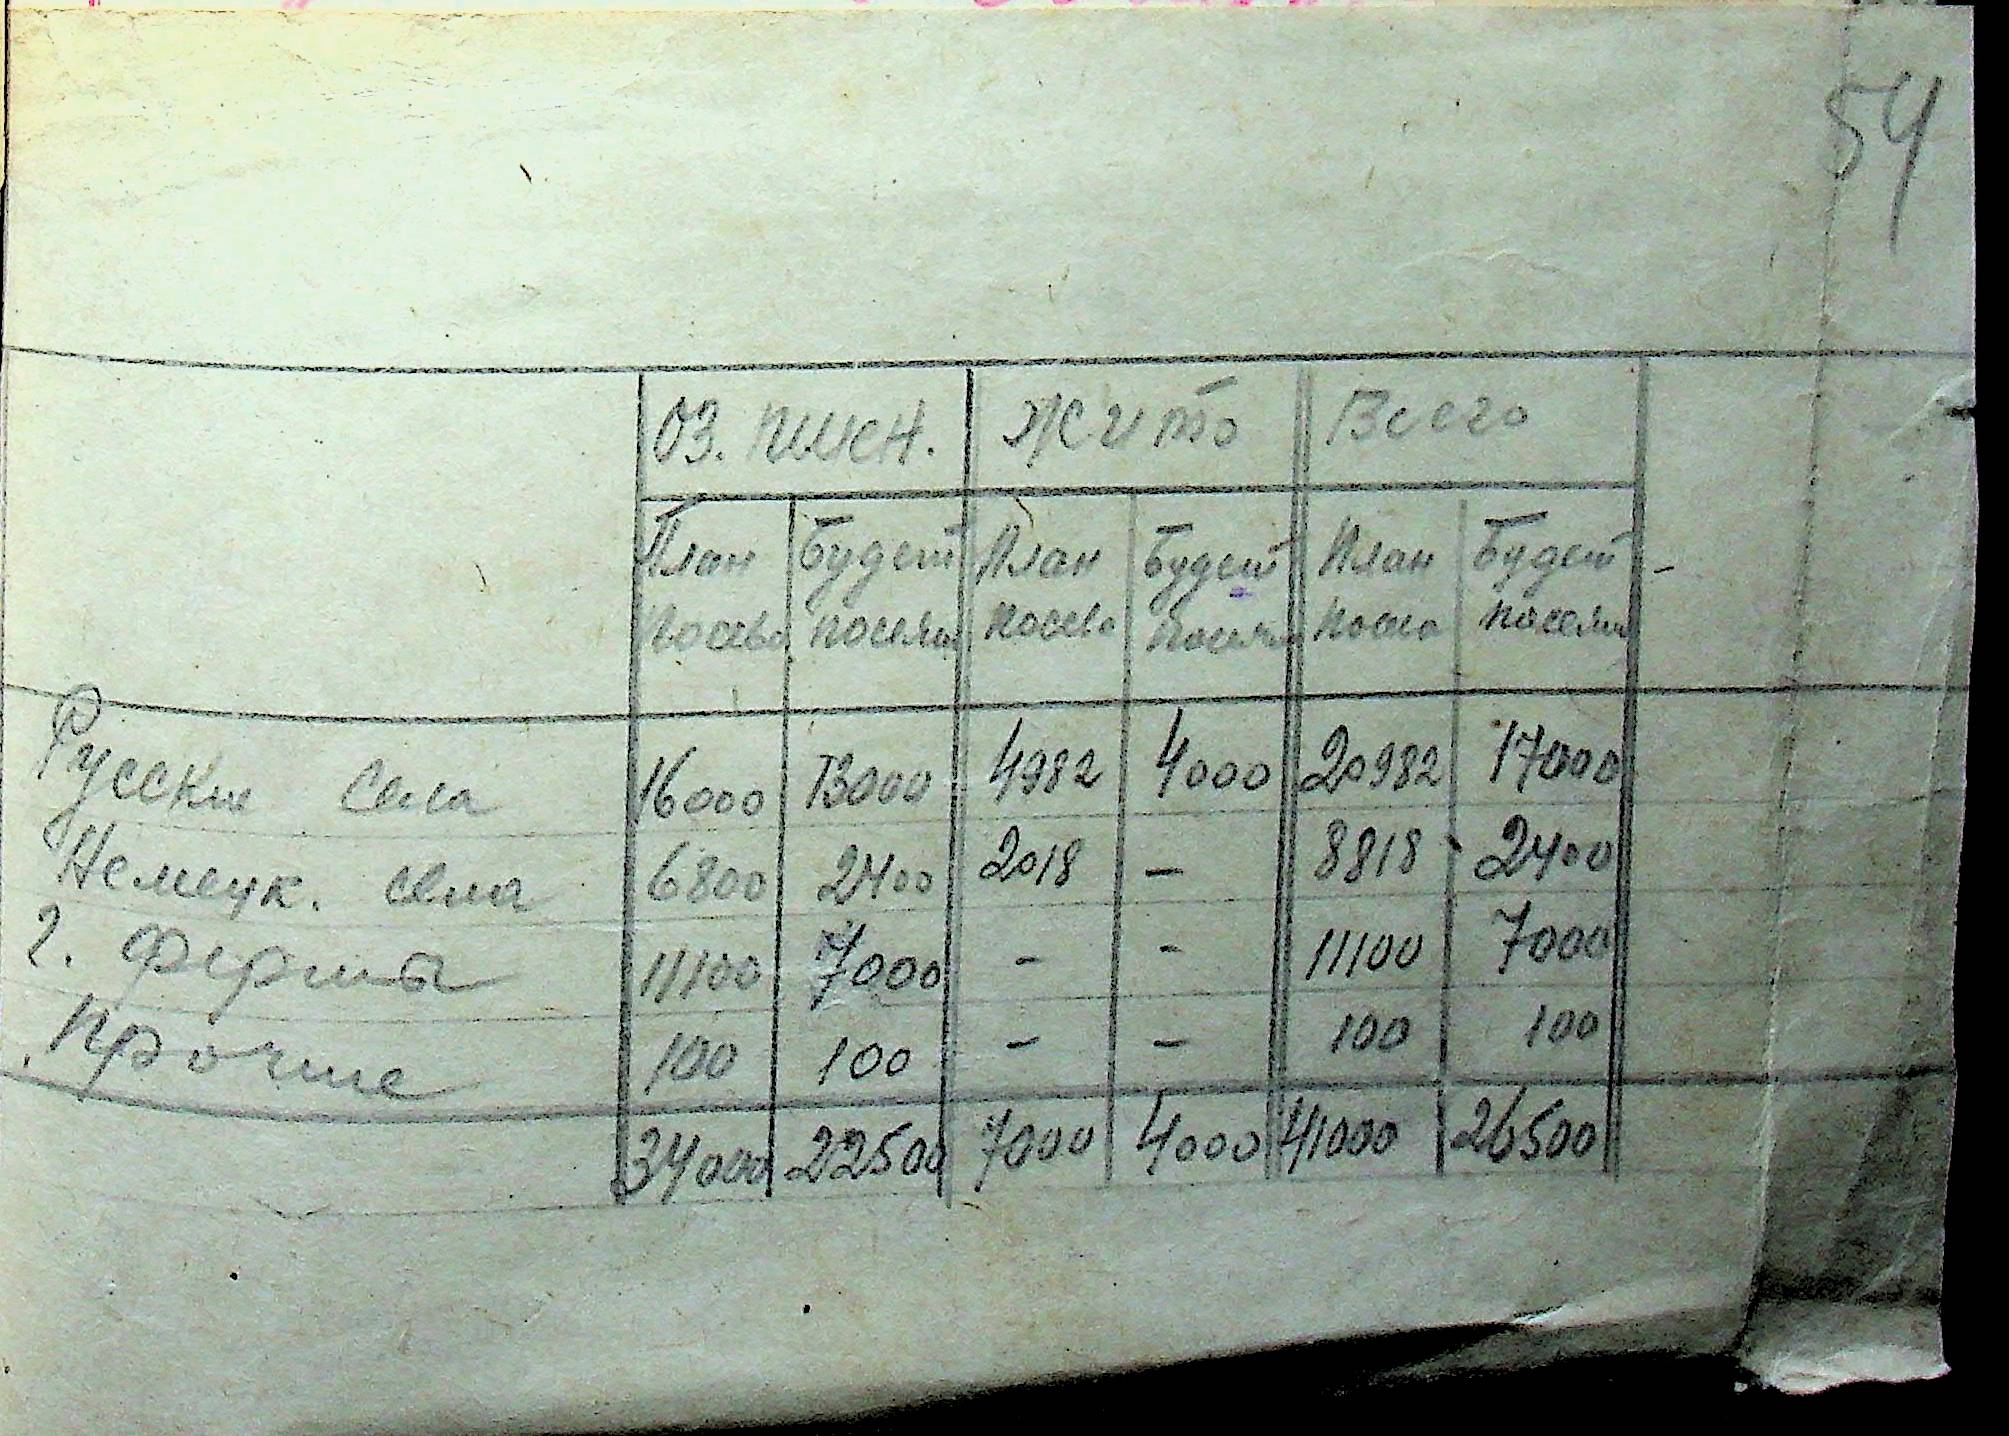 54
Оз. пшен. Жито Всего
План Будет План Будет План Будет
посева посеян посева посеян посева посеян
Русские села 16000 13000 4982 4000 20982 17000
Немецк. села 6800 2400 2018 – 8818 2400
Г. фермы 11100 7000 – – 11100 7000
Прочие 100 100 – – 100 100
34000 22500 7000 4000 41000 26500